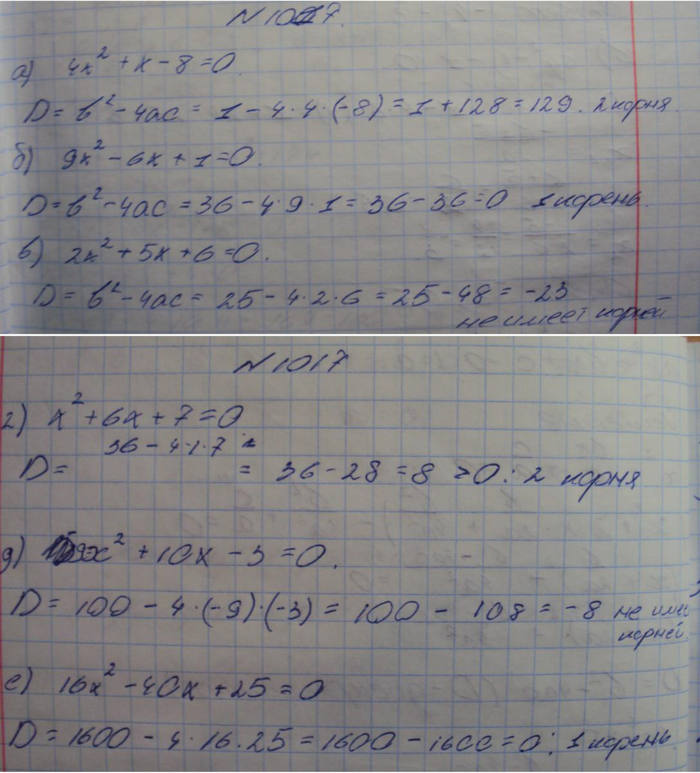 N 1017.
а) 4x² + x - 8 = 0
D = b² - 4ac = 1 - 4·4·(-8) = 1 + 128 = 129. 2 корня
б) 9x² - 6x + 1 = 0.
D = b² - 4ac = 36 - 4·9·1 = 36 - 36 = 0 1 корень.
в) 2x² + 5x + 6 = 0.
D = b² - 4ac = 25 - 4·2·6 = 25 - 48 = -23
не имеет корней
N 1017
г) x² + 6x + 7 = 0
36 - 4·1·7 =
D = = 36 - 28 = 8 > 0 : 2 корня
д) -9x² + 10x - 3 = 0.
D = 100 - 4·(-9)·(-3) = 100 - 108 = -8 не име
корней.
е) 16x² - 40x + 25 = 0
D = 1600 - 4·16·25 = 1600 - 1600 = 0 : 1 корень.